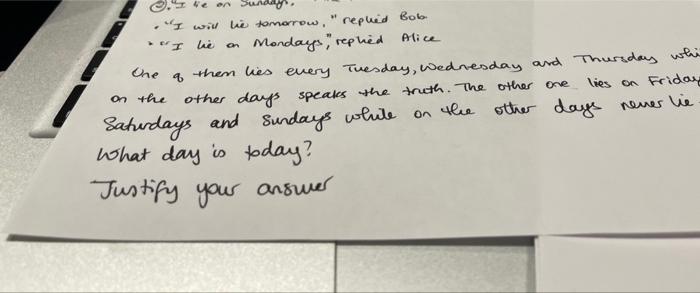 lie on Sundays.
• "I will lie tomorrow," replied Bob
• "I lie on Mondays," replied Alice
One of them lies every Tuesday, Wednesday and Thursday
on the other days speaks the truth. The other one lies on Friday
Saturdays and Sundays while on the other days never lie
What day is today?
Justify your answer